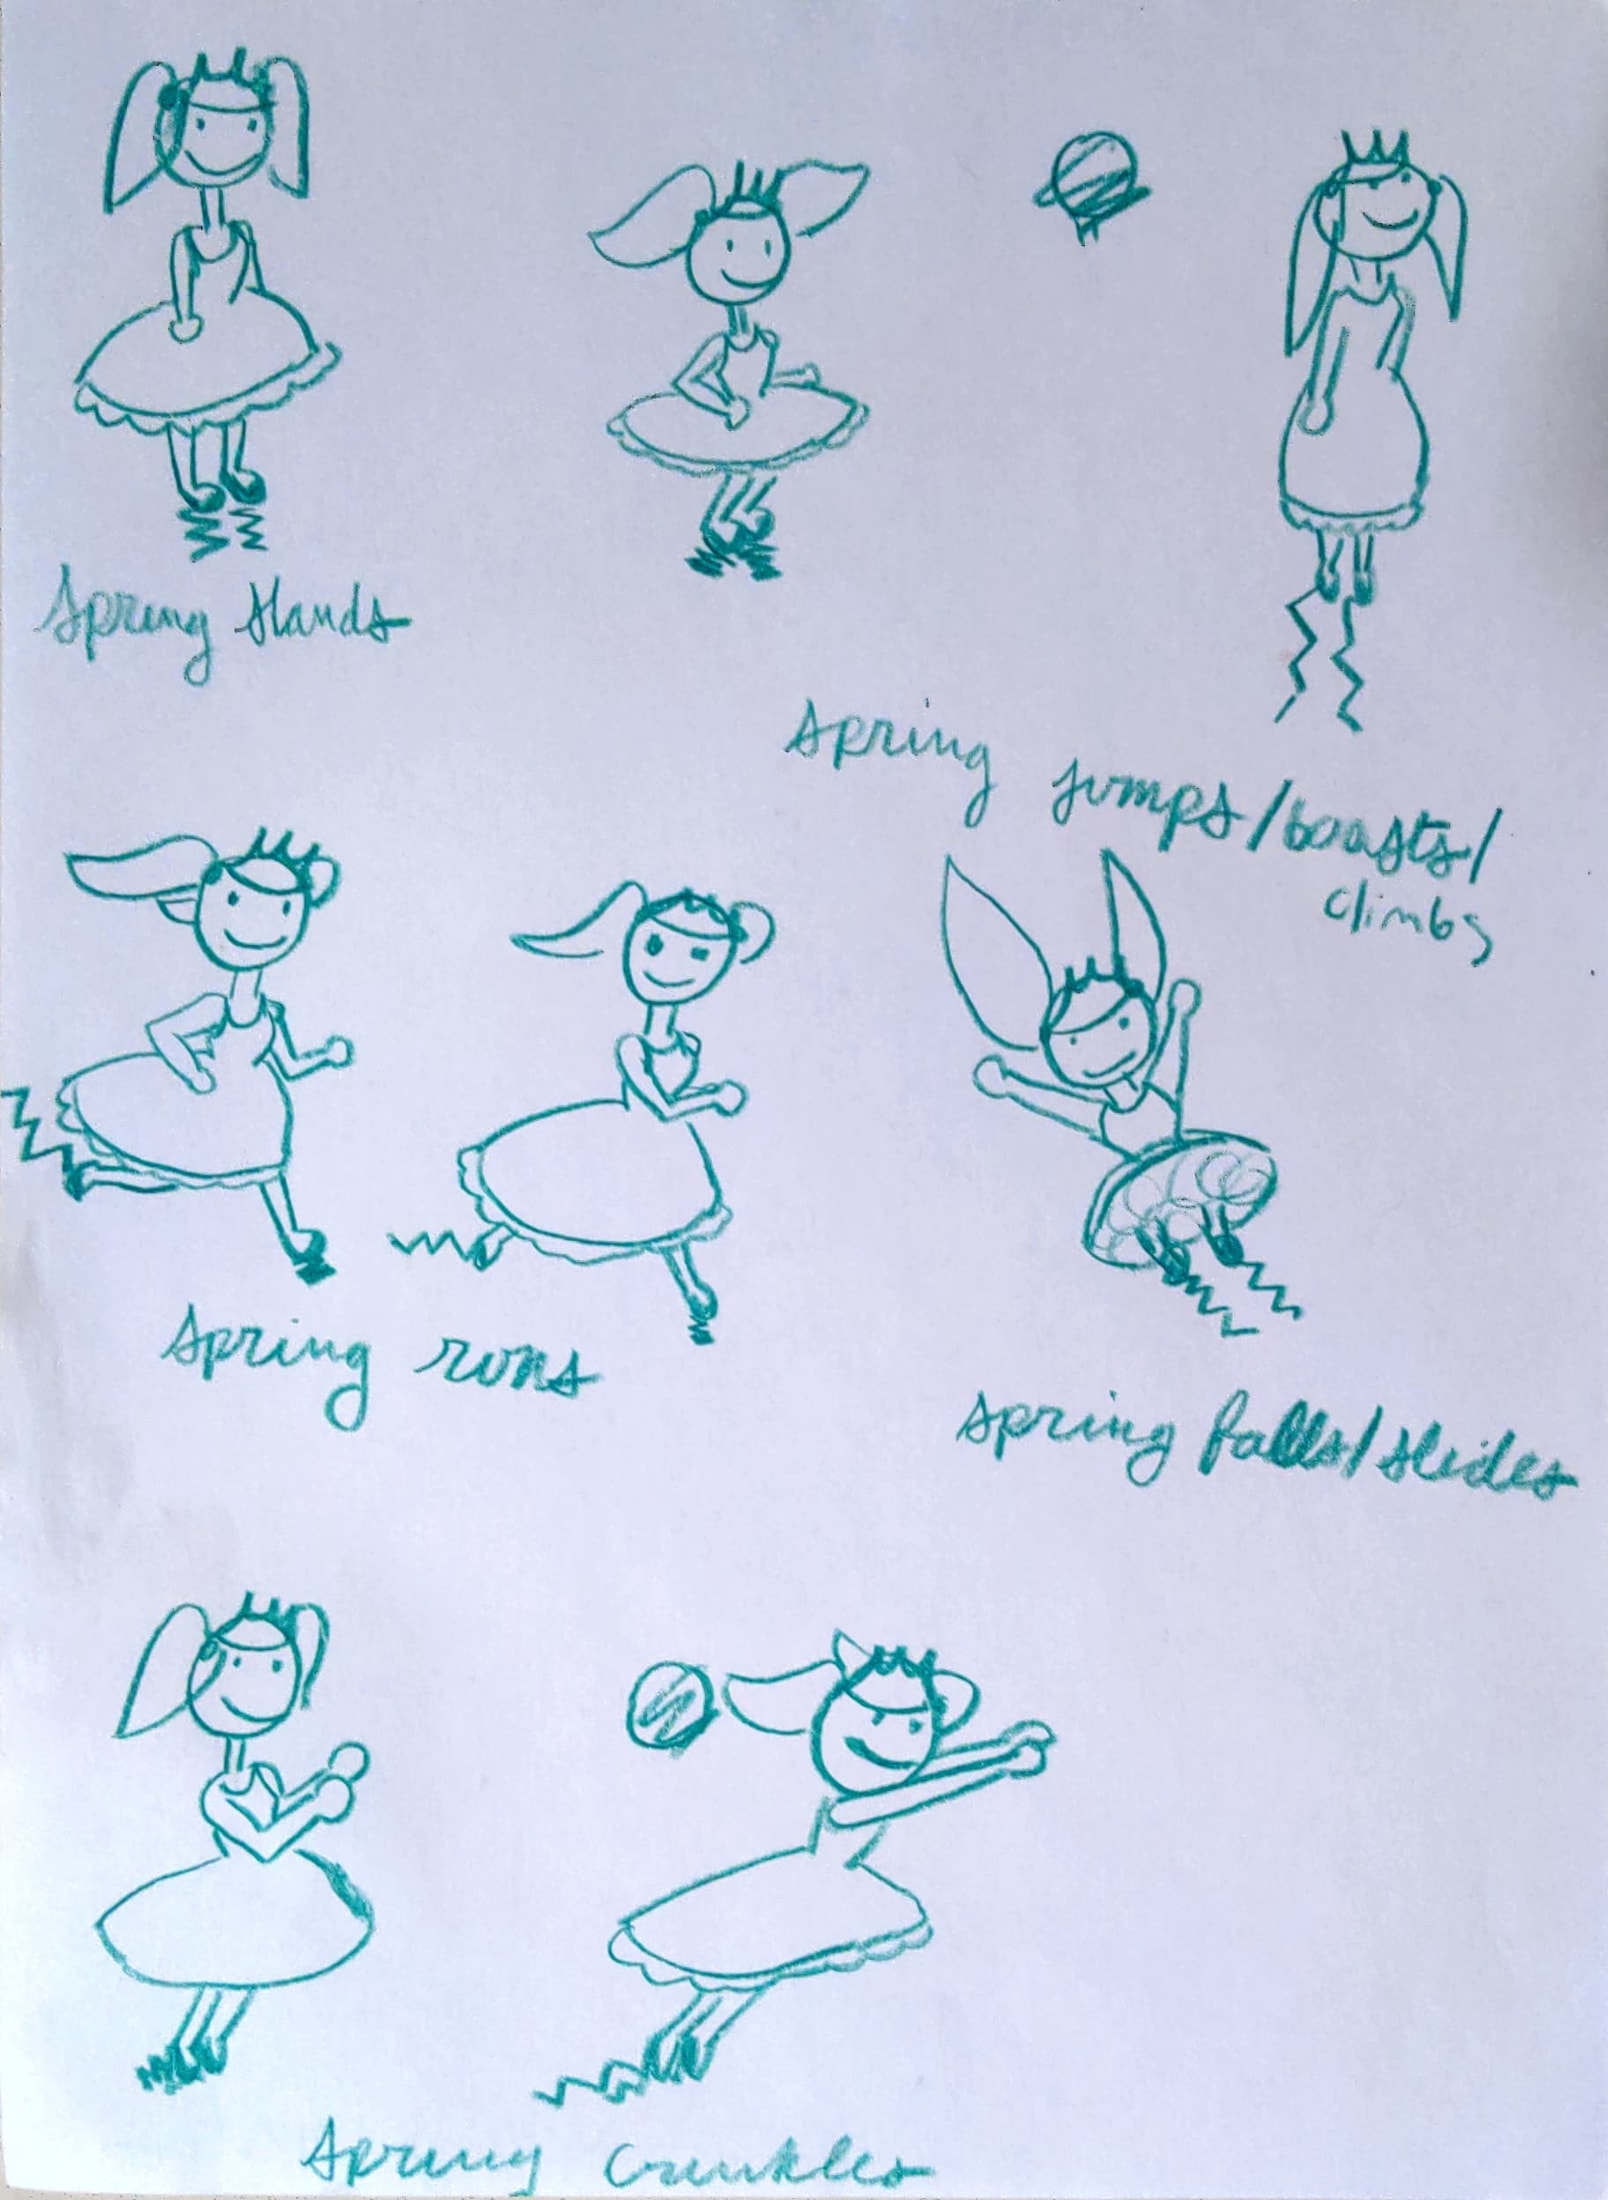 Spring stands
Spring jumps/boasts/
climbs
Spring runs
Spring falls/slides
Spring Crinkles